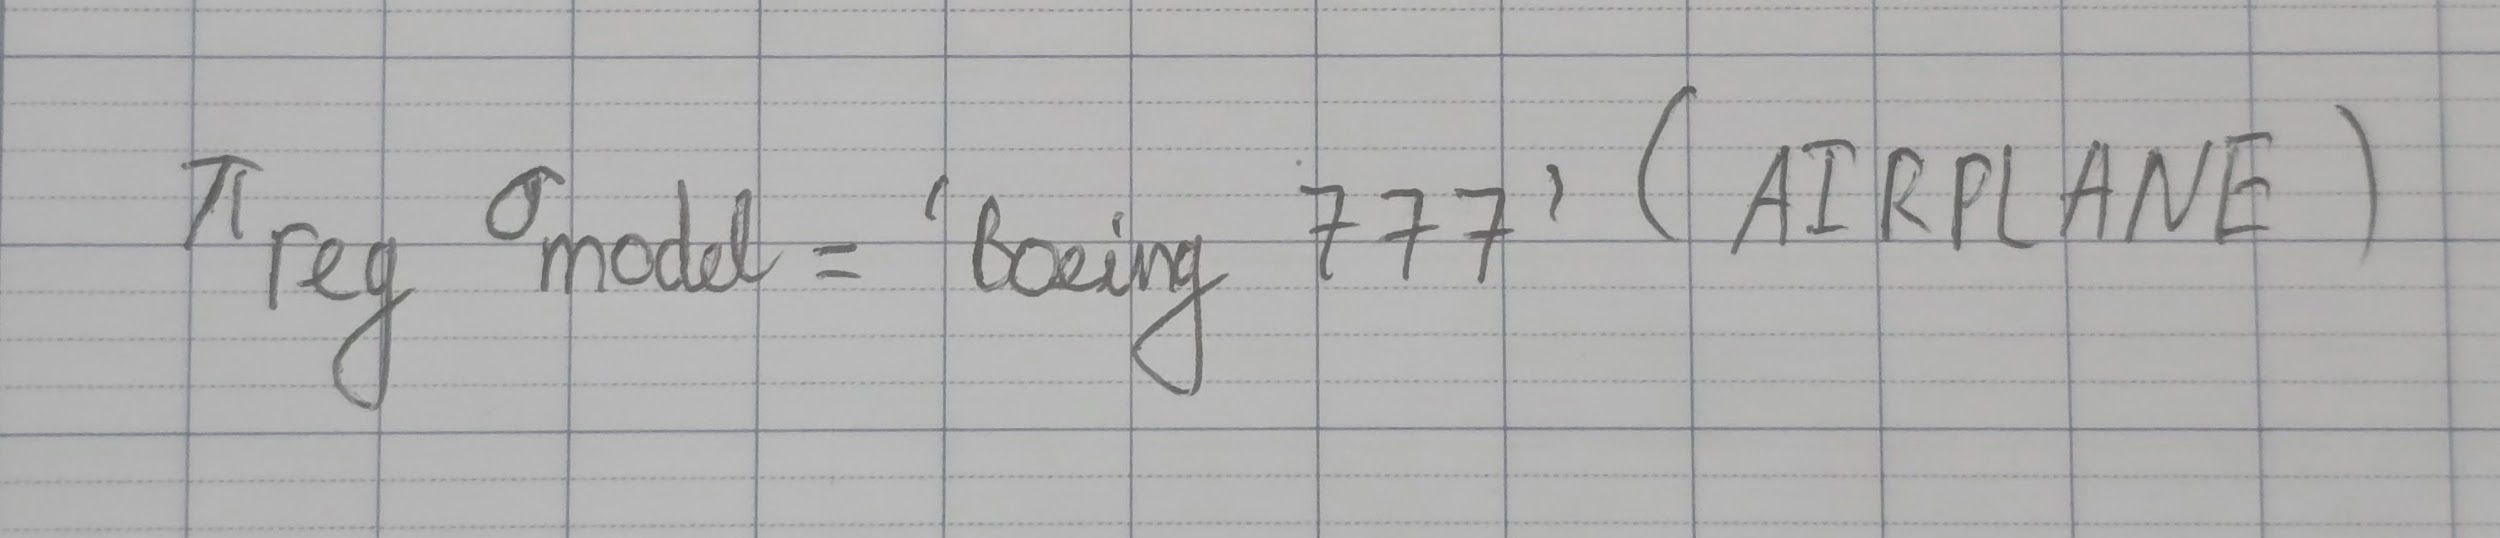 π reg σ model = 'Boeing 777' (AIRPLANE)